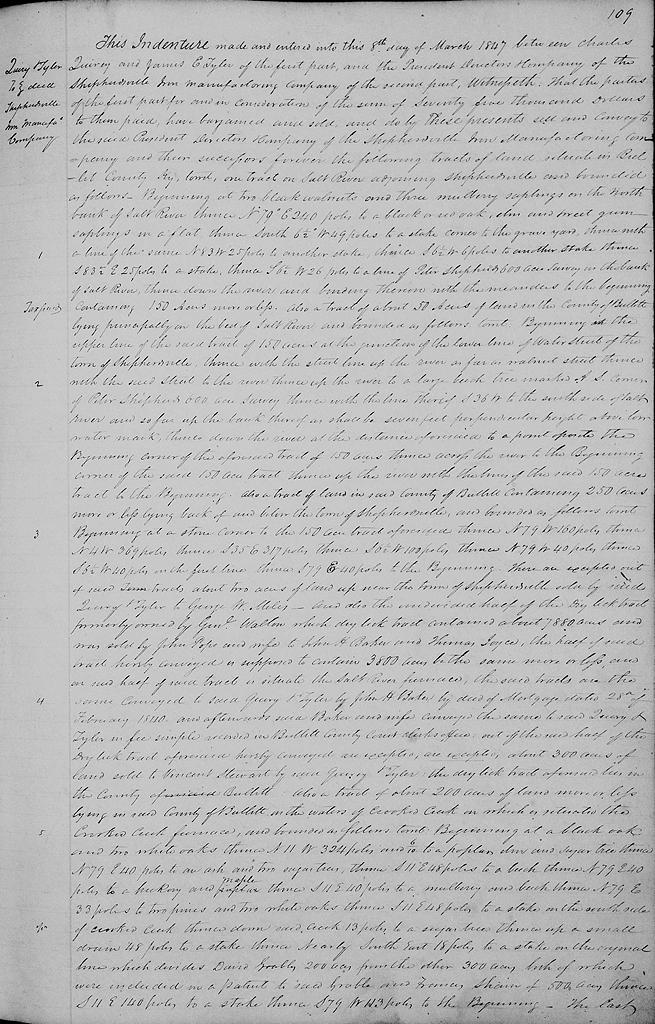 109
Quirey & Tyler
To } deed
Shepherdsville
Iron Manufa
Company
This Indenture made and entered into this 8th day of March 1847 between Charles
Quirey and James E. Tyler of the first part, and the President Directors & Company of the
Shepherdsville Iron manufacturing Company of the second part, Witnesseth. That the parties
of the first part for and in consideration of the sum of Seventy five thousand Dollars
to them paid, have bargained and sold, and do by these presents sell and convey to
the said President Directors & Company of the Shepherdsville Iron Manufacturing Com
-pany and their successors forever the following tracts of land situate in Bul
-litt County Ky, towit, one tract on Salt River adjoining Shepherdsville and bounded
as follows - Beginning at two black walnuts and three mulberry saplings on the North
bank of Salt River thence N 79° E 240 poles to a black or red oak, elm and sweet gum
saplings in a flat thence South 6½ W 49 poles to a stake corner to the grave yard, thence with
1
a line of the same N 83 W 25 poles to another stake, thence S 6½ W 6 poles to another stake thence
S 83½ E 25 poles to a stake, thence S 6½ W 26 poles to a line of Peter Shepherds 600 acre survey on the bank
of Salt River, thence down the river and binding thereon with the meanders to the beginning
Tax paid
Containing 150 Acres more or less. Also a tract of about 50 Acres of land in the County of Bullitt
lying principally on the bed of Salt River and bounded as follows towit. Beginning in the
upper line of the said tract of 150 acres at the junction of the lower line of Water Street of the
town of Shepherdsville, thence with the street line up the river as far as walnut street thence
2
with the said street to the river thence up the river to a large beech tree marked A. S. Corner
of Peter Shepherds 600 acre survey thence with the line thereof S 36 W to the south side of Salt
River and so far up the bank thereof as shall be seven feet perpendicular height above low
water mark, thence down the river at the distance aforesaid to a point oposite the
Beginning corner of the aforesaid tract of 150 acres thence across the river to the Beginning
corner of the said 150 acre tract thence up the river with the lines of the said 150 acre
tract to the Beginning. Also a tract of land in said County of Bullitt Containing 250 acres
more or less lying back of and below the town of Shepherdsville, and bounded as follows towit
3
Beginning at a stone corner to the 150 acre tract aforesaid thence N 79 W 160 poles thence
N 4 W 369 poles thence S 35 E 317 poles thence S 6½ W 103 poles thence N 79 W 40 poles thence
S 6½ W 40 poles on the first line thence S 79 E 40 poles to the Beginning. There are excepted out
of said tracts about two acres of land up near the town of Shepherdsville sold by said
Quirey & Tyler to George W. - And also the undivided half of the Dry lick tract
formerly owned by Genl. Walton which dry lick tract contained about 7880 acres and
was sold by John Pope and wife to John H Baker and Thomas Joyce, the half of said
tract hereby conveyed is supposed to contain 3800 acres be the same more or less, and
on said half of said tract is situate the Salt River furnace, the said tracts are the
4
same conveyed to said Quirey & Tyler by John H Baker by deed of Mortgage dated 28th of
February 1840. and afterwards said Baker and wife conveyed the same to said Quirey &
Tyler in fee simple recorded in Bullitt County Court clerks office. out of the said half of the
Dry lick tract aforesaid hereby conveyed are excepted, about 300 acres of
land sold to Vincent Stewart by said Quirey & Tyler. the dry lick tract aforesaid lies in
the County of Bullitt. Also a tract of about 200 acres of land more or less
lying in said County of Bullitt on the waters of Crooked Creek on which is situated the
5
Crooked Creek furnace, and bounded as follows towit. Beginning at a black oak
and two white oaks thence N 11 W 324 poles and to a poplar, elm and sugar tree thence
N 79 E 40 poles to an ash and two sugartrees, thence S 11 E 48 poles to a beech thence N 79 E 40
poles to a hickory and maple thence S 11 E 40 poles to a mulberry and beech thence N 79 E
33 poles to two pines and two white oaks thence S 11 E 48 poles to a stake on the south side
of crooked Creek thence down said Creek 13 poles to a sugar tree thence up a small
drain 48 poles to a stake thence Nearly South East 18 poles to a stake on the original
line which divides David Grables 200 acres from the other 300 acres, both of which
were included in a patent to said Grable and Thomas Shain of 500 acres, thence
S 11 E 140 poles to a stake thence S 79 W 113 poles to the Beginning - The last